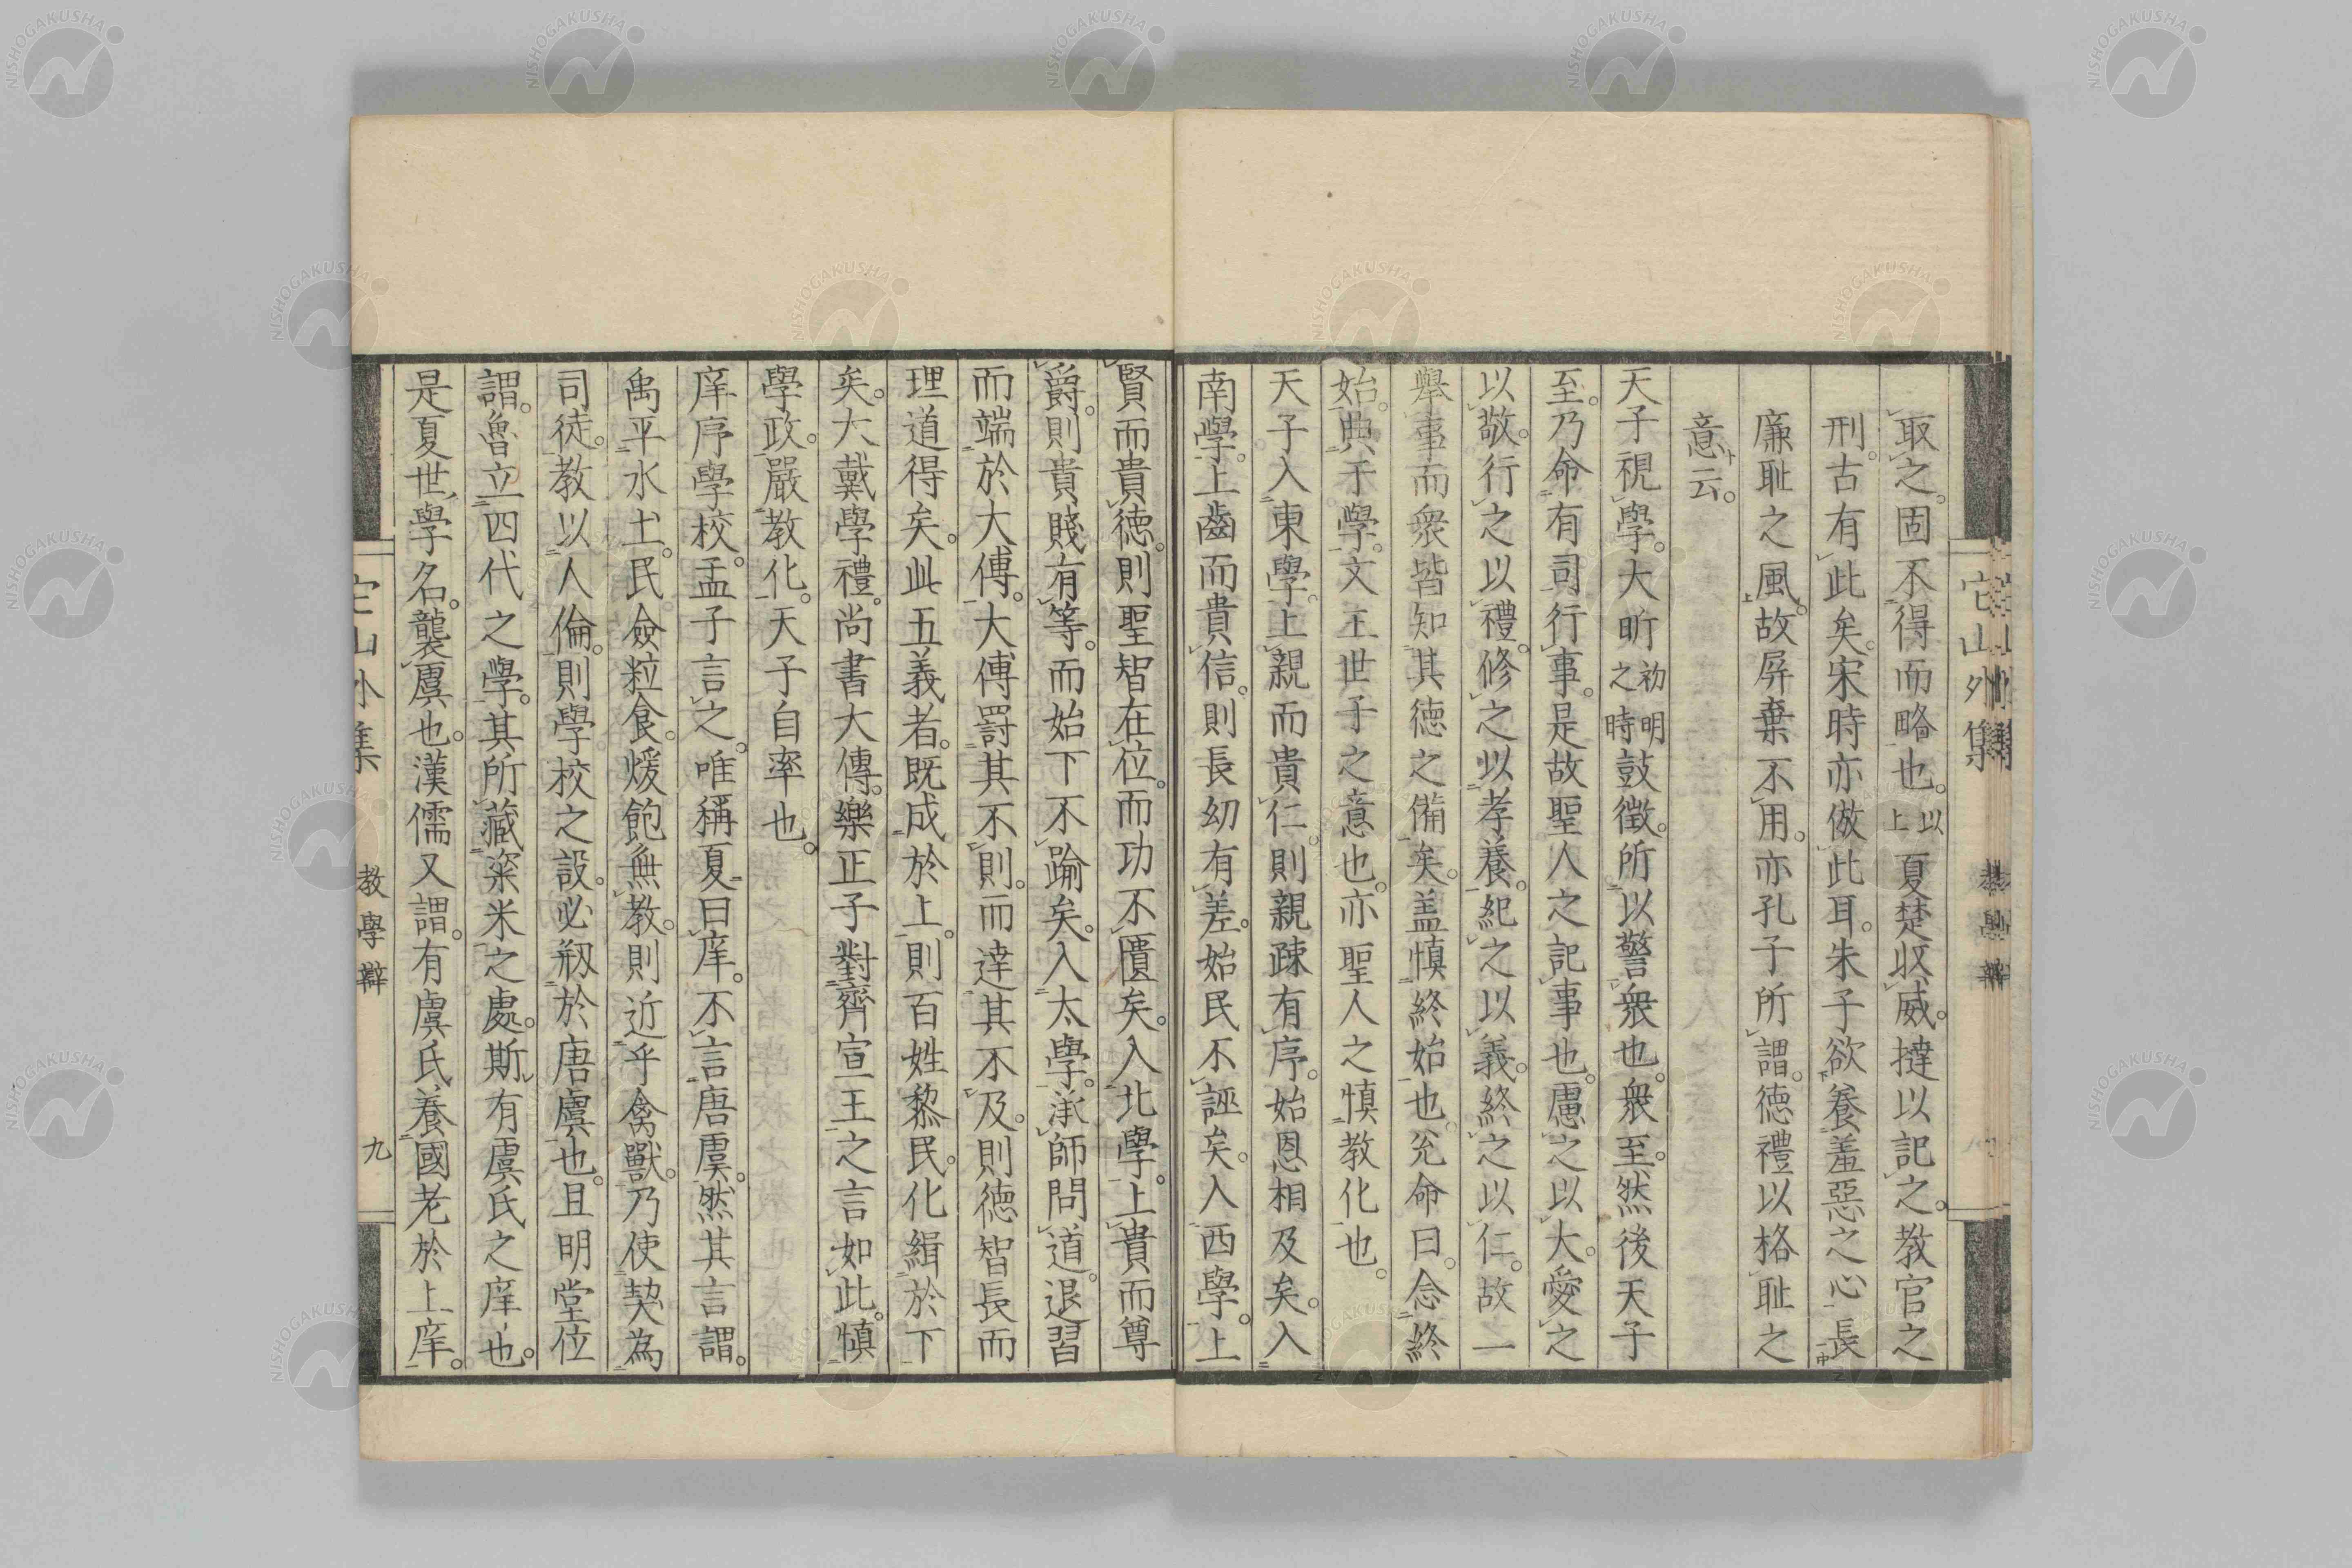 取之。固不得而略也。以上夏楚收威。撻以記之。教官之
刑。古有此矣。宋時亦倣此耳。朱子欲養羞惡之心長
廉耻之風。故屏棄不用。亦孔子所謂。德禮以格耻之
意云。
天子視學。大昕初明之時鼓徵。所以警衆也。衆至。然後天子
至。乃命有司行事。是故聖人之記事也。慮之以大。愛之
以敬。行之以禮。修之以孝養。紀之以義。終之以仁。故一
舉事而衆皆知其德之備矣。盖慎終始也。兊命曰。念終
始。典于學。文王世子之意也。亦聖人之慎教化也。
天子入東學。上親而貴仁。則親疎有序。始恩相及矣。入
南學。上齒而貴信。則長幼有差。始民不誣矣。入西學。上
賢而貴德。則聖智在位。而功不匱矣。入北學。上貴而尊
爵。則貴賤有等。而始下不踰矣。入太學。承師問道。退習
而端於大傅。大傅罸其不則。而達其不及。則德智長而
理道得矣。此五義者。既成於上。則百姓黎民。化緝於下
矣。大戴學禮。尚書大傳。樂正子對齊宣王之言如此。慎
學政。嚴教化。天子自率也。
庠序學校。孟子言之。唯稱夏曰庠。不言唐虞。然其言謂。
禹平水土。民僉粒食。煖飽無教。則近乎禽獸。乃使契為
司徒。教以人倫。則學校之設。必剏於唐虞也。且明堂位
謂。魯立四代之學。其所藏粢米之處。斯有虞氏之庠也。
是夏世學名。襲虞也。漢儒又謂。有虞氏養國老於上庠。
宅山外集
教學辯
九